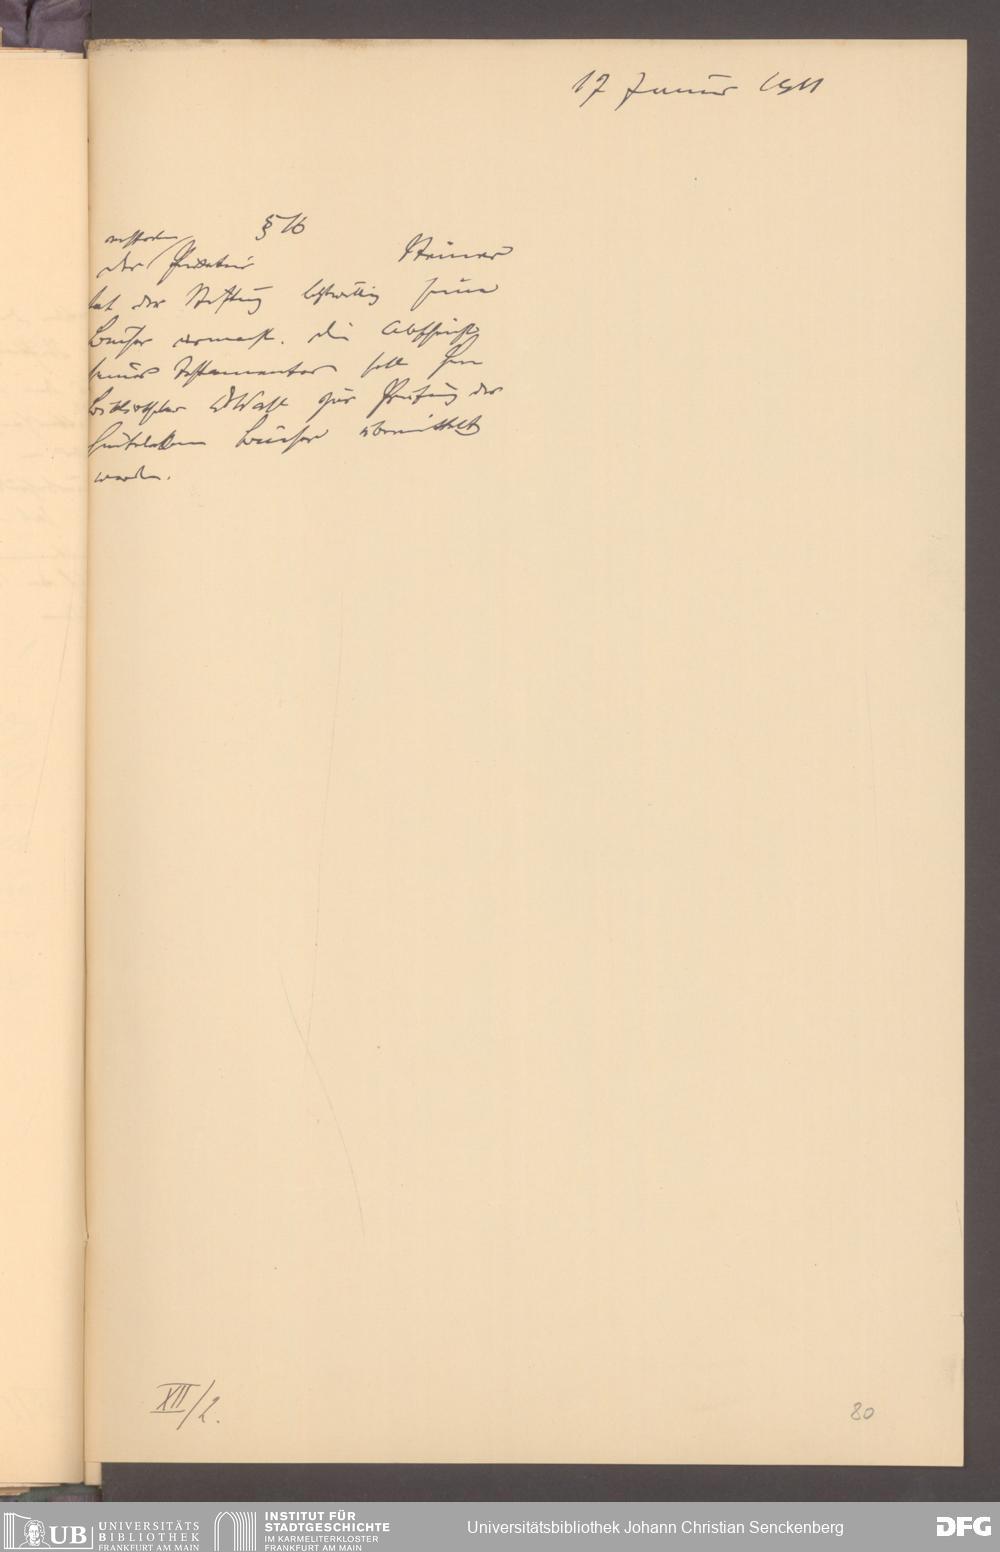 17 Januar 1911
§ 76
verstorbene
Der Privatier Steiner
hat der Stiftung letztwillig seine
Bücher vermacht. Die Abschrift
seines Testamentes soll Hrn
Bibliothekar zur Prüfung der
hinterlassenen Bücher übermittelt
werden.
XII/2.
80
UB UNIVERSITÄTS
BIBLIOTHEK
FRANKFURT AM MAIN
INSTITUT FÜR
STADTGESCHICHTE
IM KARMELITERKLOSTER
FRANKFURT AM MAIN
Universitätsbibliothek Johann Christian Senckenberg
DFG